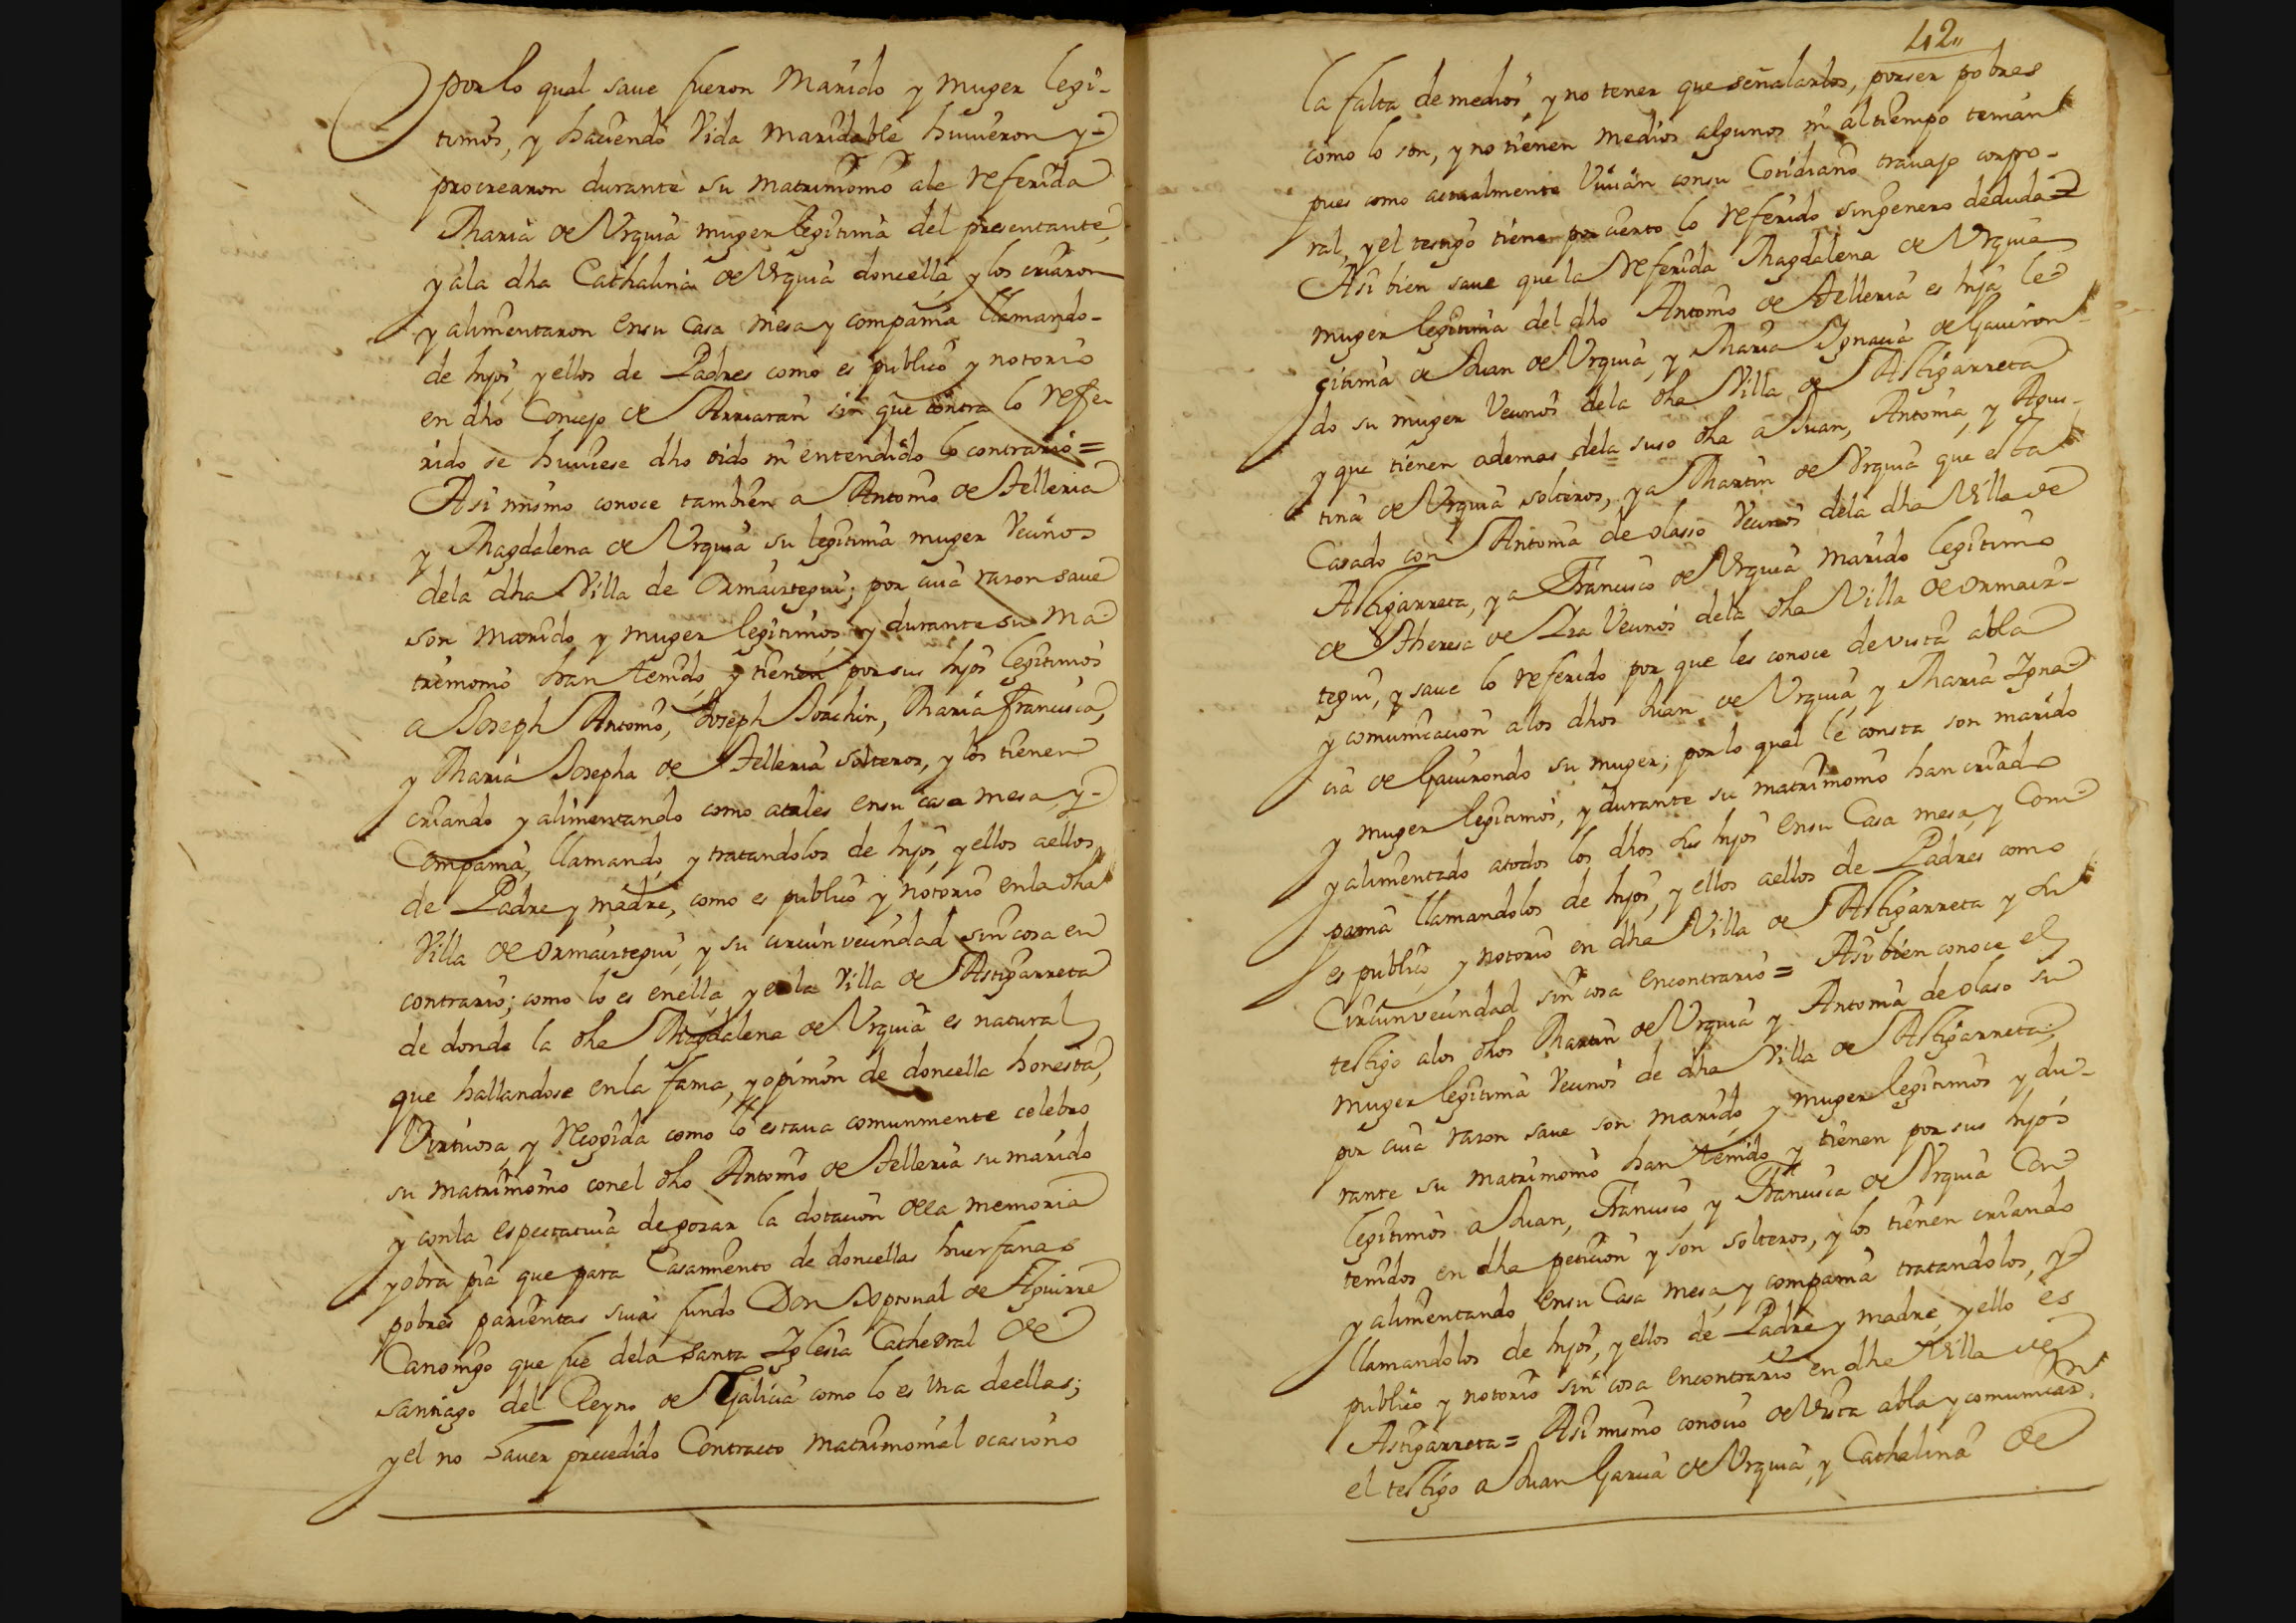 por lo qual saue fueron Marido y muger legi-
timos, y haciendo Vida maridable huuieron y
procrearon durante su matrimonio ale referida
Maria de Vrquia muger legitima del presentante,
y ala dha Cathalina de Vrquia doncella, y los criaron
y alimentaron ensu Casa mesa y compania llamando-
de hijos, y ellos de Padres como es publico y notorio
en dho Concejo de Arriaran sin que contra lo refe
rido se huuiese dho oido ni entendido lo contrario =
Asi mismo conoce tambien a Antonio de Telleria
y Magdalena de Vrquia su legitima muger Vecinos
dela dha Villa de Ormaiztegui; por cuia razon saue
son marido y muger legitimos, y durante su ma
trimonio han tenido, y tienen por sus hijos legitimos
a Joseph Antonio, Joseph Joachin, Maria Francisca,
y Maria Josepha de Telleria solteros, y los tienen
criando y alimentando como atales ensu casa mesa, y
Compania, llamando, y tratandolos de hijos, y ellos aellos
de Padre y madre, como es publico y notorio enla dha
Villa de Ormaiztegui, y su circunvecindad sin cosa en
contrario; como lo es enella, y enla Villa de Astigarreta
de donde la dha Magdalena de Vrquia es natural
que hallandose enla fama, y opinion de doncella honesta,
Virtuosa, y Recogida como lo estaua comunmente celebro
su matrimonio conel dho Antonio de Telleria su marido
y conla espectatiua degozar la dotacion dela memoria
y obra pia que para Casamiento de doncellas huerfanas
pobres parientas suias fundo Don Asptonal de Aguirre
Canonigo que fue dela Santa Iglesia Cathedral de
Santiago del Reyno de Galicia como lo es Vna deellas;
y el no hauer precedido Contracto matrimonial ocasiono
42
la falta de medios, y no tener que señalarlos, porser pobres
como lo son, y no tienen medios algunos ni altiempo tenian
pues como actualmente Viuian consu Cotidiano trauajo corpo-
ral, y el testigo tiene por cierto lo referido singenero deduda =
Asi bien saue que la referida Magdalena de Vrquia
muger legitima del dho Antonio de Telleria es hija le
gitima de Juan de Vrquia, y Maria Ignacia de Gauiron
do su muger Vecinos dela dha Villa de Astigarreta
y que tienen ademas dela suso dha a Juan, Antonia, y Agus-
tina de Vrquia solteros, ya Martin de Vrquia que esta
Casado con Antonia de olasso Vecinos dela dha Villa de
Astigarreta, ya Francisco de Vrquia marido legitimo
de Theresa de Lza Vecinos dela dha Villa de Ormaiz-
tegui, y saue lo referido por que les conoce de vista abla
y comunicacion alos dhos Juan de Vrquia, y Maria Igna
cia de Gauirondo su muger; por lo qual le consta son marido
y muger legitimos, y durante su matrimonio han criado
y alimentado atodos los dhos sus hijos ensu Casa mesa, y Com
pania llamandolos de hijos, y ellos aellos de Padres como
es publico, y notorio en dha Villa de Astigarreta y su
Circunvecindad sin cosa encontrario = Asi bien conoce el
testigo alos dhos Martin de Vrquia y Antonia de olaso su
muger legitima Vecinos de dha Villa de Astigarreta;
por cuia razon saue son marido, y muger legitimos y du-
rante su matrimonio han tenido, y tienen por sus hijos
legitimos a Juan, Francisco, y Francisca de Vrquia Con
tenidos en dha peticion y son solteros, y los tienen criando
y alimentando ensu Casa mesa, y compania tratandolos, y
llamandolos de hijos, y ellos de Padre y madre, y ello es
publico y notorio sin cosa encontrario en dha Villa de
Astigarreta = Asi mismo conocio de Vista abla y comunicaon
el testigo a Juan Garcia de Vrquia, y Cathalina de